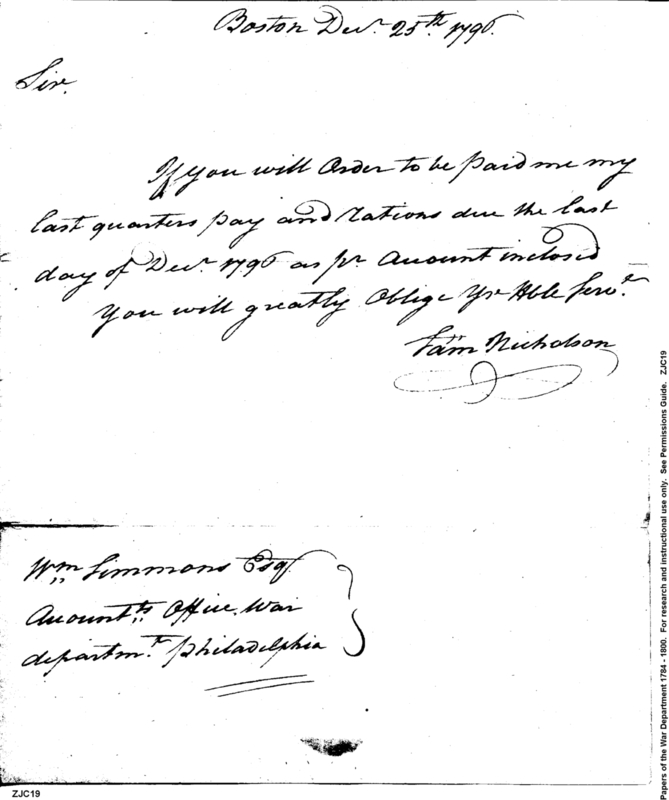 Boston Decr. 25th. 1796.
Sir.
If you will Order to be paid me my
last quarters pay and rations due the last
day of Decr. 1796 as pr. Account inclosed
You will greatly Oblige Yr Hble Servt.
Sam Nicholson
Wm Simmons Esq
Accountts Office. War
departmt. Philadelphia
ZJC19
Papers of the War Department 1784 - 1800. For research and instructional use only. See Permissions Guide. ZJC19